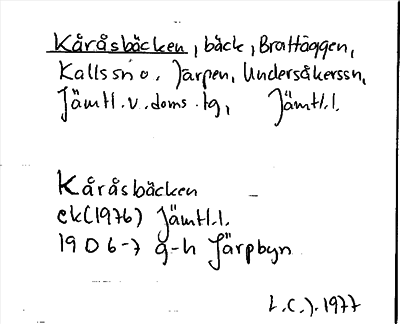 Kåråsbäcken, bäck, Brattäggen,
Kallssn o. Järpen, Undersåkerssn,
Jämtl.v.doms.tg, Jämtl.l.
Kåråsbäcken
ek(1976) Jämtl.l.
1906-7 g-h Järpbyn
L.C.J.1977